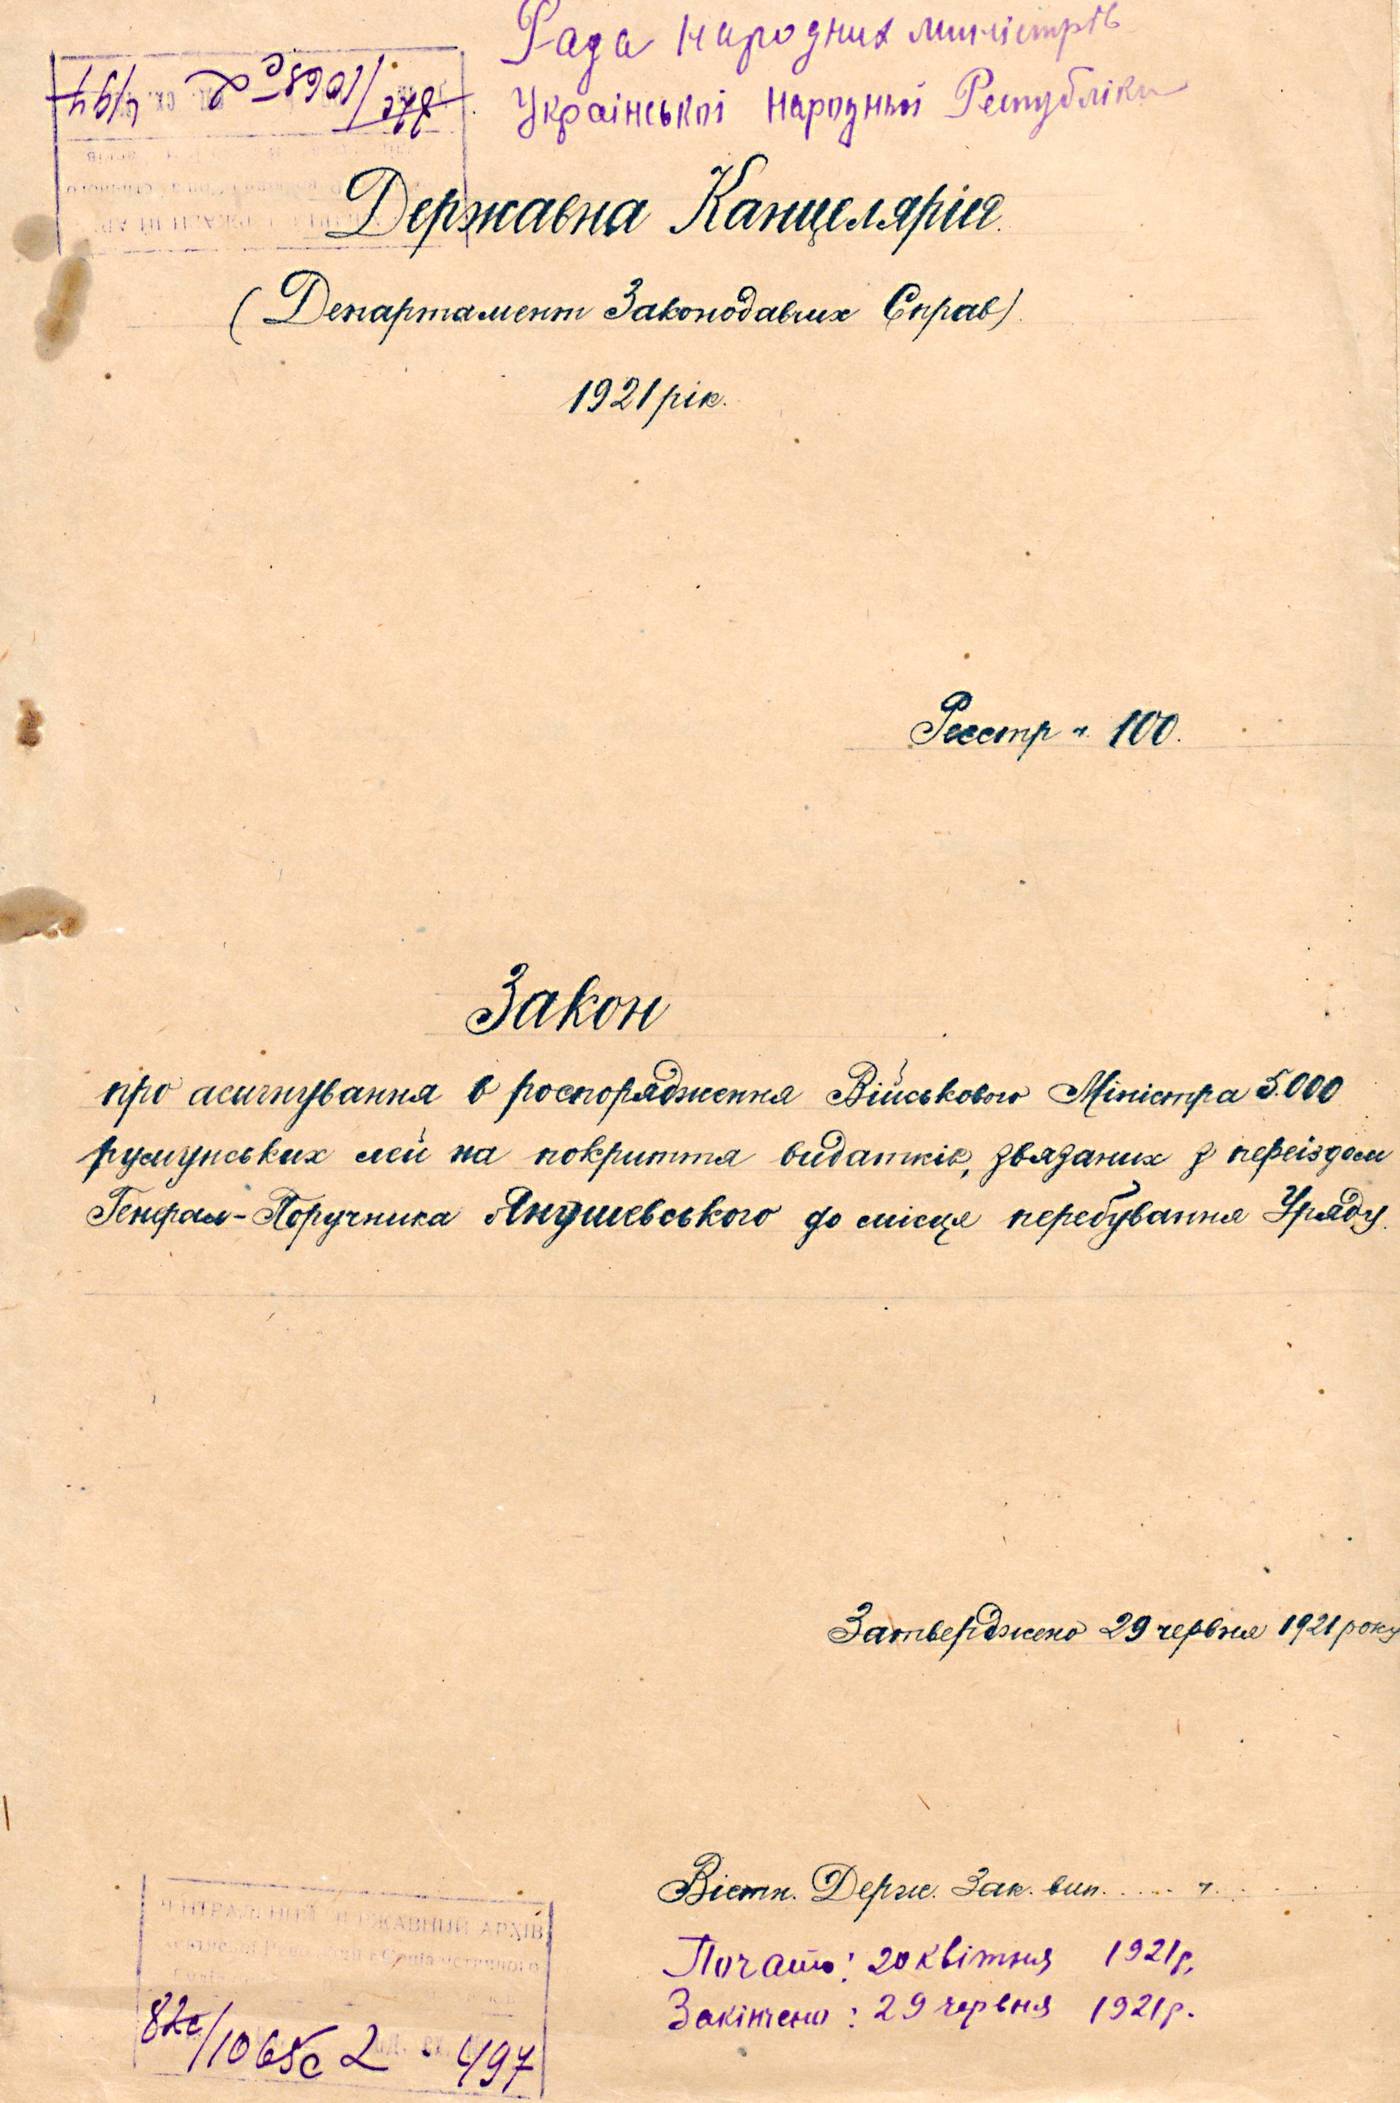 Рада народних міністрів
Української Народньої Республіки
Державна Канцелярія.
(Департамент Законодавчих Справ).
1921 рік.
Реєстр ч. 100.
Закон
про асигнування в роспорядження Військового Міністра 5.000
румунських лей на покриття видатків, звязаних з переіздом
Генерал-Поручника Янушевського до місця перебування Уряду.
Затверджено 29 червня 1921 року
Вістн. Держ. Зак. вип. .... ч. ....
Почато: 20 квітня 1921 р.
Закінчено: 29 червня 1921 р.
ЦЕНТРАЛЬНИЙ ДЕРЖАВНИЙ АРХІВ
82с/1065с 2 497